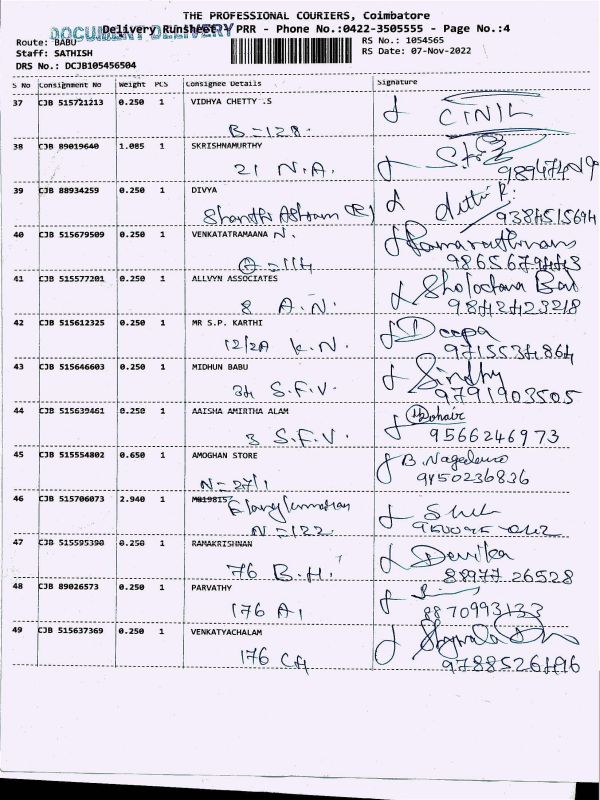 THE PROFESSIONAL COURIERS, Coimbatore
DOCUMENT DELIVERY
Delivery Runsheet - PRR - Phone No.:0422-3505555 - Page No.:4
Route: BABU
RS No.: 1054565
Staff: SATHISH
RS Date: 07-Nov-2022
DRS No.: DCJB105456504
S No Consignment No Weight PCS Consignee Details Signature
37 CJB 515721213 0.250 1 VIDHYA CHETTY .S
B=128 CINIL
38 CJB 89019640 1.085 1 SKRISHNAMURTHY
21 N.A.
39 CJB 88934259 0.250 1 DIVYA
Shanthi Ashram (R) 9384515694
40 CJB 515679509 0.250 1 VENKATATRAMAANA N.
=114 9865679443
41 CJB 515577201 0.250 1 ALLVYN ASSOCIATES
8 A.N. 9842423218
42 CJB 515612325 0.250 1 MR S.P. KARTHI Deepa
12/2A K.N. 9715534864
43 CJB 515646603 0.250 1 MIDHUN BABU Sindhy
34 S.F.V. 9791903505
44 CJB 515639461 0.250 1 AAISHA AMIRTHA ALAM
3 S.F.V. 9566246973
45 CJB 515554802 0.650 1 AMOGHAN STORE B.
N=27/1 9450236836
46 CJB 515706073 2.940 1
N=122
47 CJB 515595390 0.250 1 RAMAKRISHNAN Devika
76 B.H. 88977 26528
48 CJB 89026573 0.250 1 PARVATHY
176 A1 8870993133
49 CJB 515637369 0.250 1 VENKATYACHALAM
176 C4 9788526496